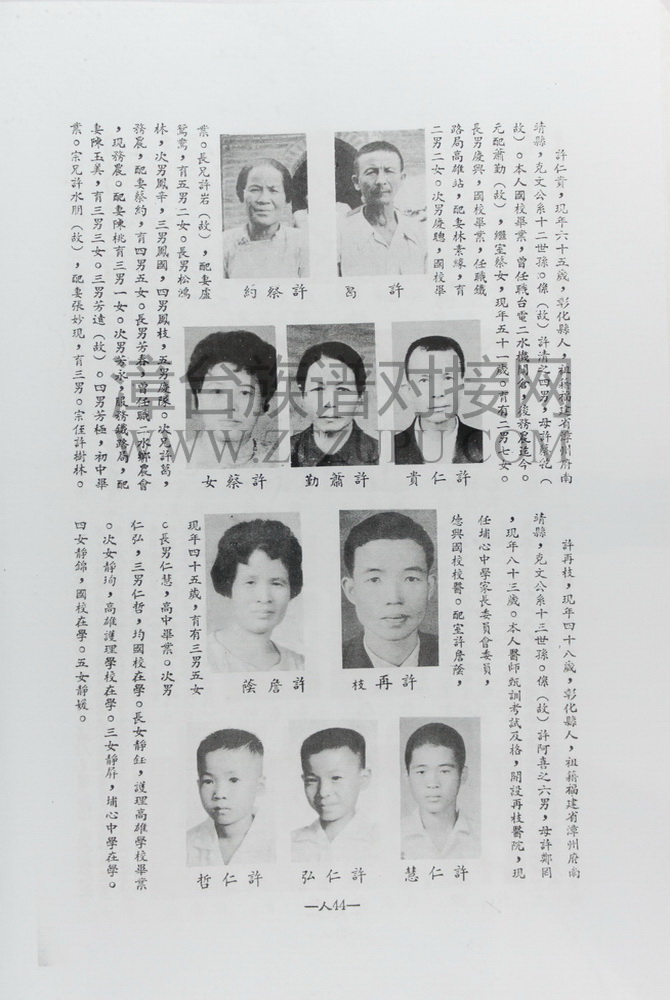 許仁貴，現年六十五歲，彰化縣人，祖籍福建省漳州府南
靖縣，克文公系十二世孫。係（故）許清之四男，母許
故）。本人國校畢業，曾任職台電二水機關倉，後務農迄今。
元配蕭勤（故），繼室蔡女，現年五十一歲。育有二男七女。
長男慶興，國校畢業，任職鐵
路局高雄站，配妻林素緣，育
二男二女。次男慶聰，國校畢
業。長兄許岩（故），配妻盧
鴛鴦，育五男二女。長男松鴻
林，次男鳳辛，三男鳳國，四男鳳枝，五男慶陳。次兄許葛，
務農，配妻蔡約，育四男五女。長男芳春，曾任職二水鄉農會
，現務農。配妻陳桃育三男一女。次男芳永，服務鐵路局，配
妻陳玉美，育三男三女。三男芳遠（故）。四男芳極，初中畢
業。宗兄許水朋（故），配妻張妙現，育三男。宗侄許樹林。
許葛
許蔡約
許仁貴
許蕭勤
許蔡女
許再枝，現年四十八歲，彰化縣人，祖籍福建省漳州府南
靖縣，克文公系十三世孫。係（故）許阿喜之六男，母許鄭岡
，現年八十三歲。本人醫師甄訓考試及格，開設再枝醫院，現
任埔心中學家長委員會委員，
德興國校校醫。配室許詹陰，
現年四十五歲，育有三男五女
。長男仁慧，高中畢業。次男
仁弘，三男仁哲，均國校在學。長女靜鈺，護理高雄學校畢業
。次女靜珣，高雄護理學校在學。三女靜屏，埔心中學在學。
四女靜錦，國校在學。五女靜媛。
許再枝
許詹陰
許仁慧
許仁弘
許仁哲
—人44—
台族谱对接网
WWW.ZUPU.COM